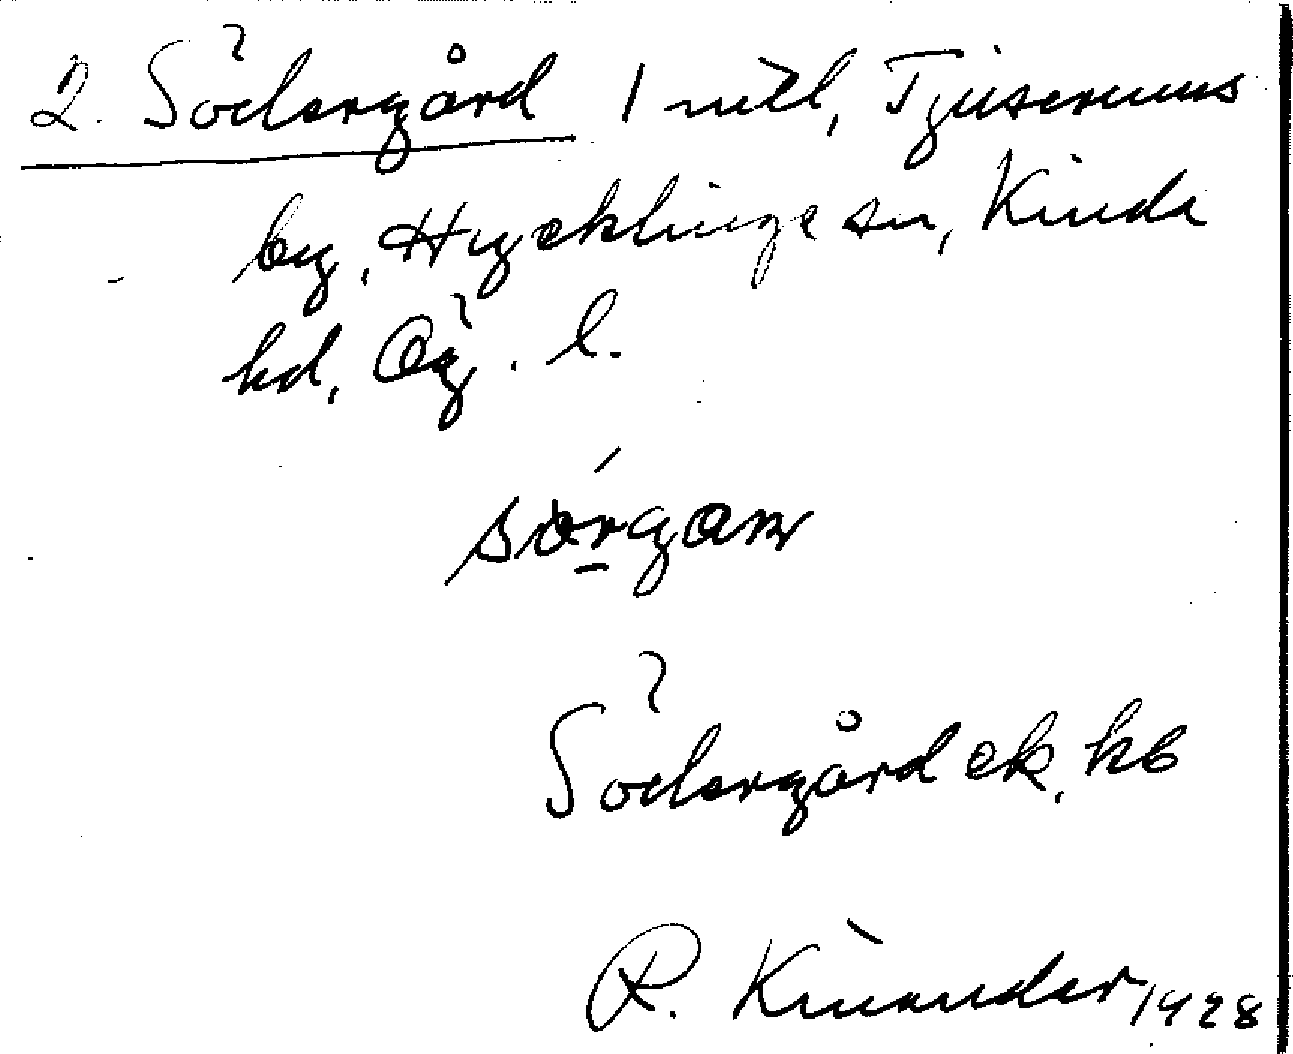 2. Södergård 1 mtl, Tjuserums
by, Hycklinge sn, Kinda
hd, Ög. l.
Södergård ek, kb
R. Kinander 1928